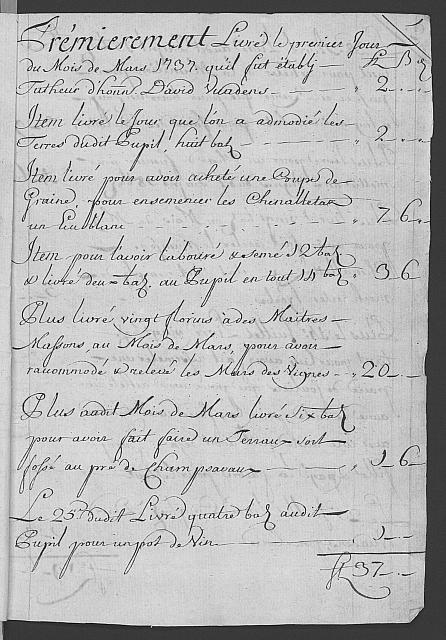 Prémierement Livré le premier Jour
du Mois de Mars 1737. quil fut établj fl B
Tutheur d'honn. David Vuadens 2
Item livré le Jour que lón a admodié les
Terres dudit Pupil, huit batz 2
Item livré pour avoir acheté une Coupe de
Graine, pour ensemencer les
un 7 6
Item pour l'avoir labouré & semé 12 batz
& livré deux batz au Pupil en tout 14 batz 3 6
Plus livré vingt florins à des Maitres
Massons au Mois de Mars, pour avoir
racommodé & relevé les Murs des Vignes 20
Plus audit Mois de Mars livré Six batz
pour avoir fait faire un Terraux soit
fossé au pré de Champsavaux 1 6
Le 25e dudit Livré quatre batz audit
Pupil pour un pot de Vin 1
fl 37